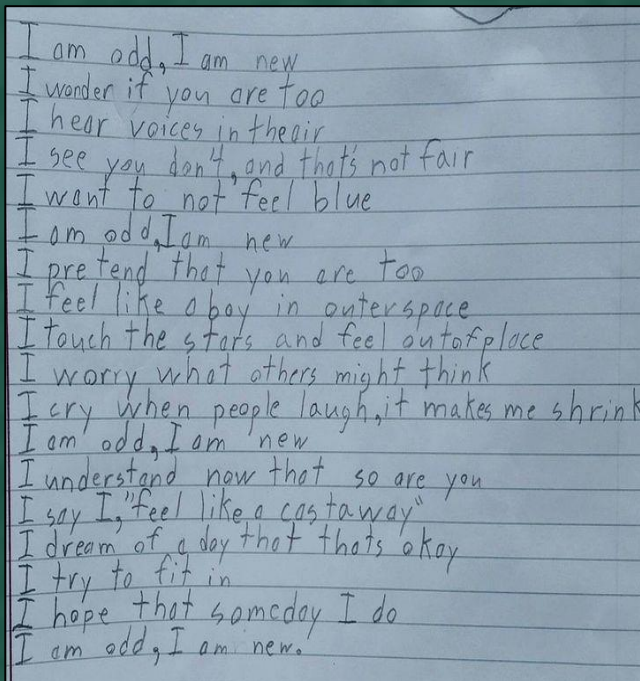 I am odd, I am new
I wonder if you are too
I hear voices in theair
I see you don't, and that's not fair
I want to not feel blue
I am odd, I am new
I pretend that you are too
I feel like a boy in outerspace
I touch the stars and feel outofplace
I worry what others might think
I cry when people laugh, it makes me shrink
I am odd, I am new
I understand now that so are you
I say I, "feel like a castaway"
I dream of a day that thats okay
I try to fit in
I hope that someday I do
I am odd, I am new.